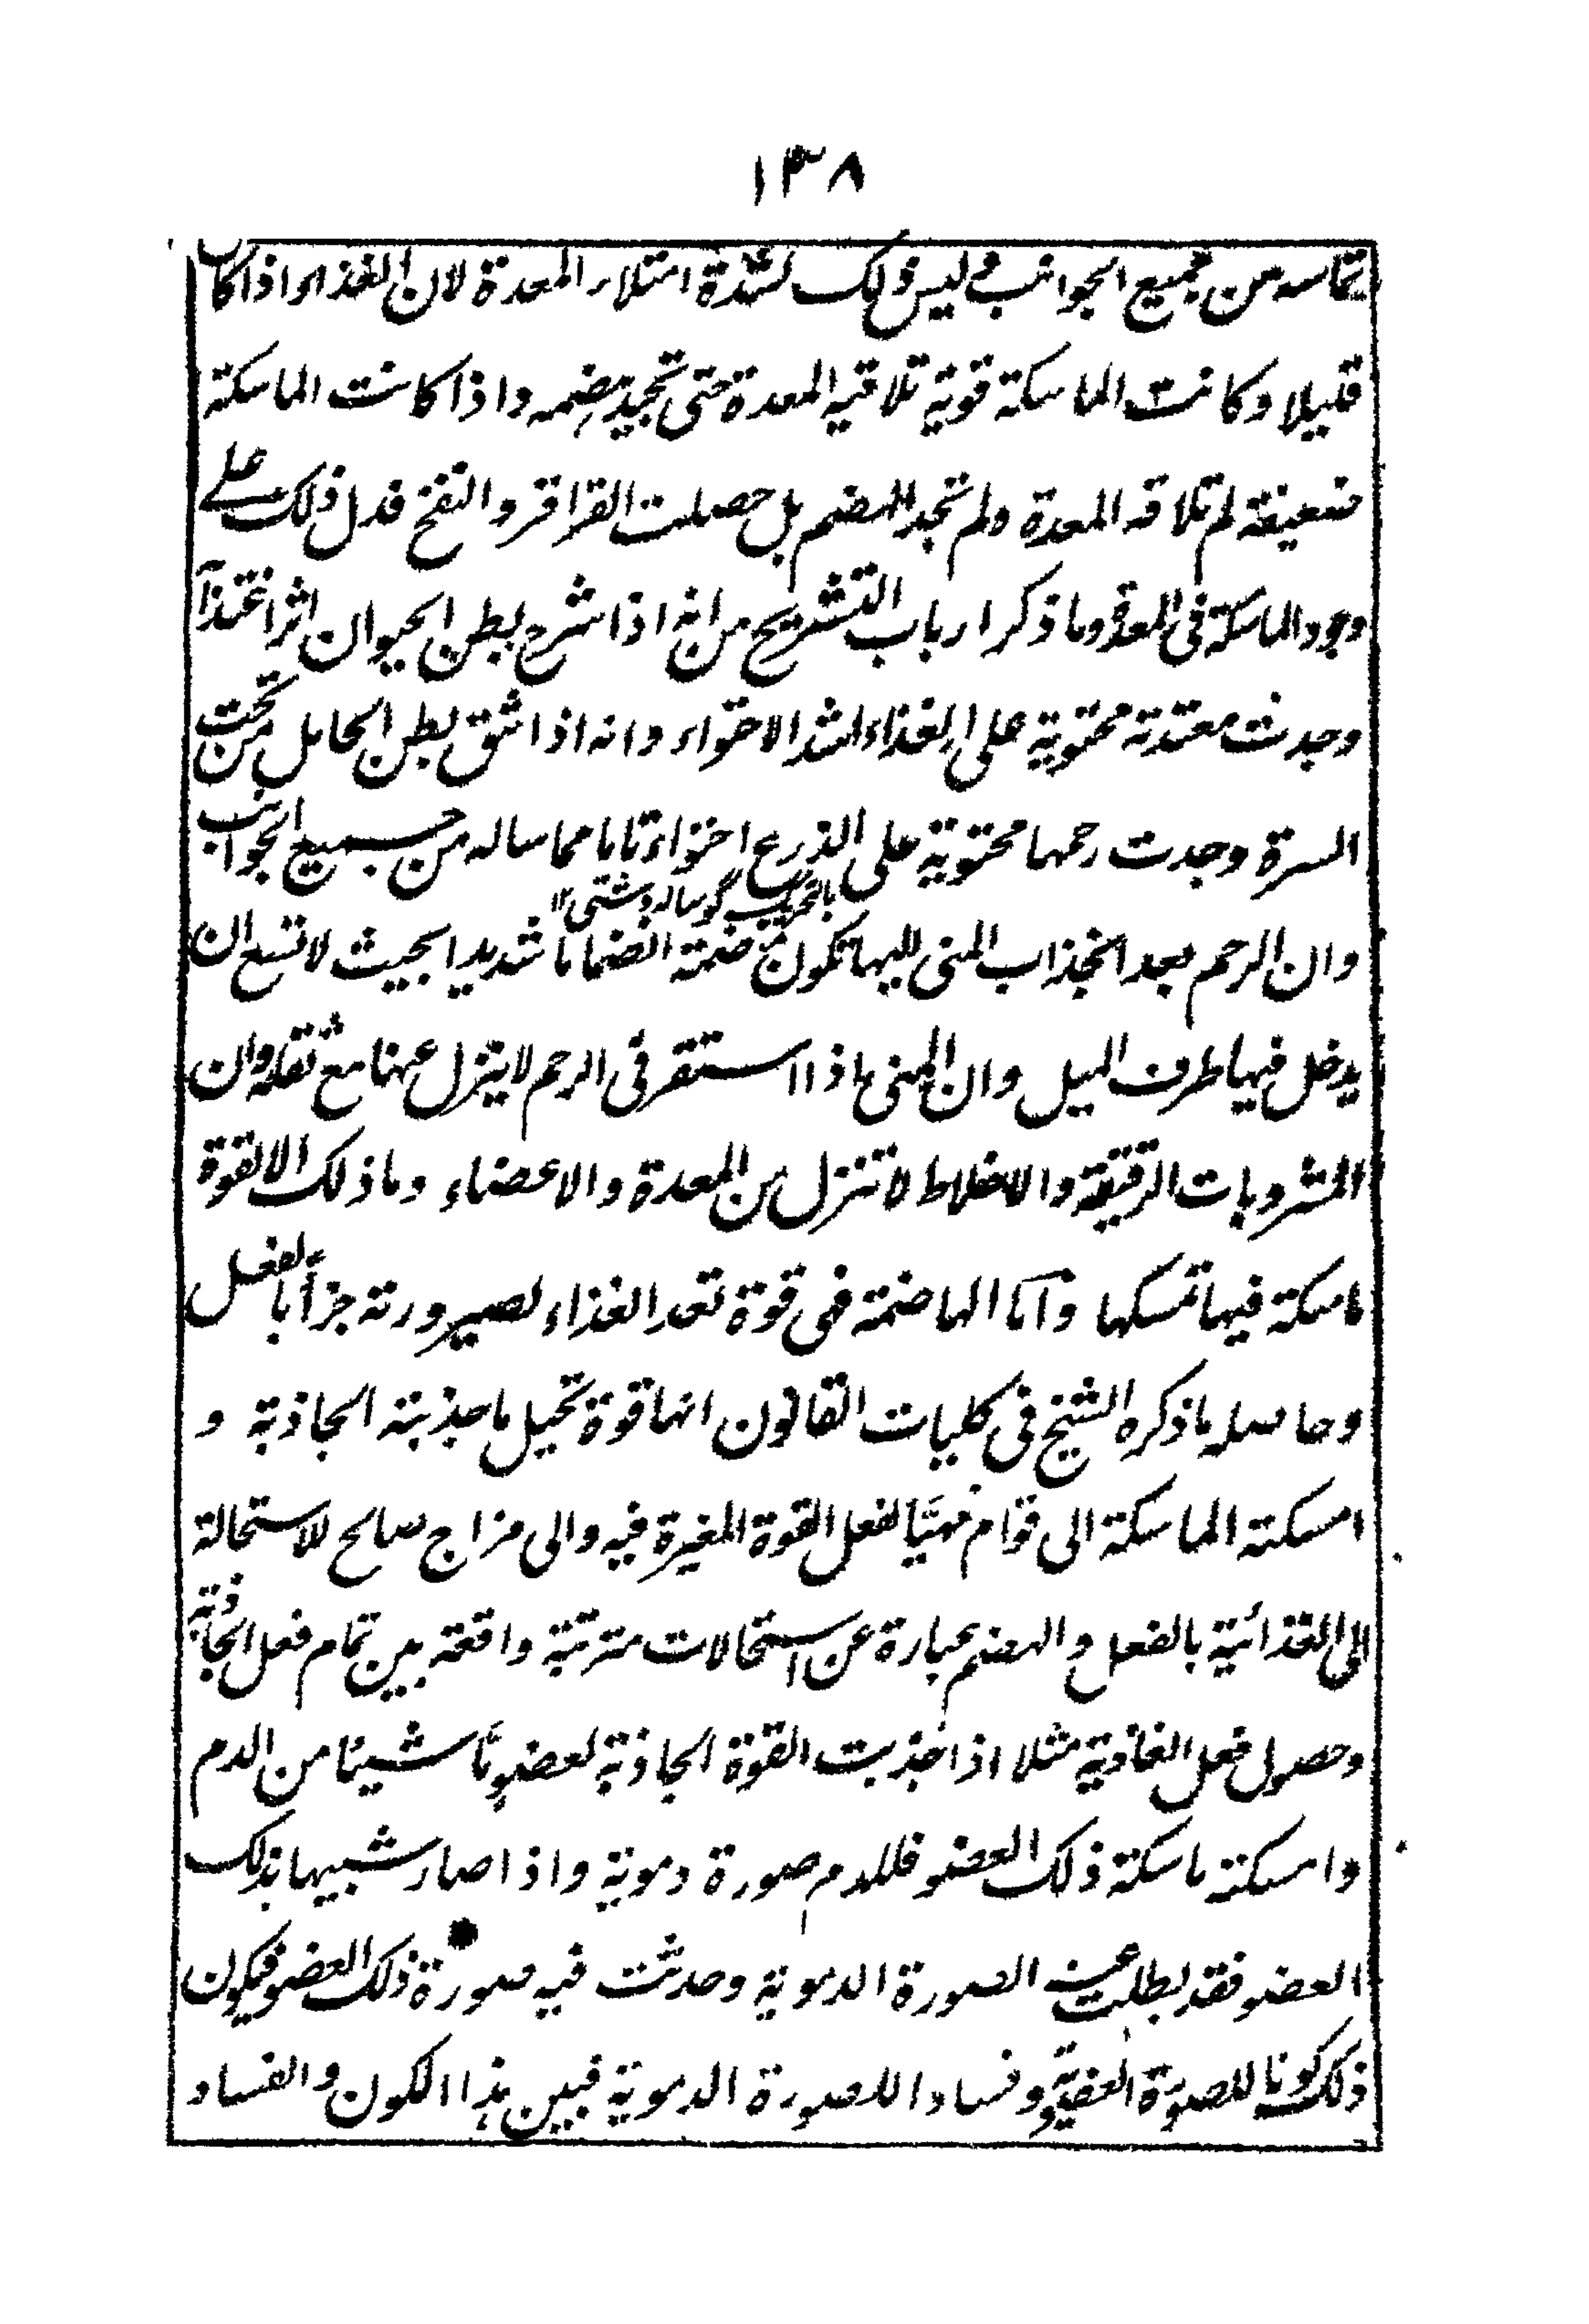 ١٣٨
تماسه من جميع الجوانب وليس ذلك لشدة امتلاء المعدة لان الغذاء اذا كان
قليلا وكانت الماسكة قوية تلاقيه المعدة حتى تجيد هضمه واذا كانت الماسكة
ضعيفة لم تلاقه المعدة ولم تجد الهضم بل حصلت القراقر والنفخ فدل ذلك على
وجود الماسكة فى المعدة وما ذكر ارباب التشريح من انه اذا شرح بطن الحيوان اثر اغتذآ
وجدت معتدته محتوية على الغذاء اشد الاحتواء وانه اذا شق بطن الحامل من تحت
السرة وجدت رحمها محتوية على الذرع احتواء تاما مماسا له من جميع الجوانب
بالتحريك گوساله دشتى ١٢
وان الرحم بعد انجذاب المنى اليها تكون منضمة انضماما شديدا بحيث لا تسع ان
يدخل فيها طرف الميل وان المنى اذا استقر فى الرحم لا ينزل عنها مع ثقله وان
المشروبات الرقيقة والاخلاط لا تنزل من المعدة والاعضاء وما ذلك الا لقوة
ماسكة فيها تمسكها وأما الهاضمة فهى قوة تعد الغذاء لصيرورته جزأ بالفعل
وحاصله ما ذكره الشيخ فى كليات القانون انها قوة تحيل ما جذبته الجاذبة و
امسكته الماسكة الى قوام مهيَّأ لفعل القوة المغيرة فيه والى مزاج صالح للاستحالة
الى الغذائية بالفعل والهضم عبارة عن استحالات مترتبة واقعة بين تمام فعل الجاذبة
وحصول فعل الغاذية مثلا اذا جذبت القوة الجاذبة لعضوٍ مَّا شيئا من الدم
وامسكته ماسكة ذلك العضو فللدم صورة دموية واذا صار شبيها بذلك
العضو فقد بطلت عنه الصورة الدموية وحدثت فيه صورة ذلك العضو فيكون
ذلك كونا للصورة العضوية وفسادا للصورة الدموية فبين هذا الكون والفساد